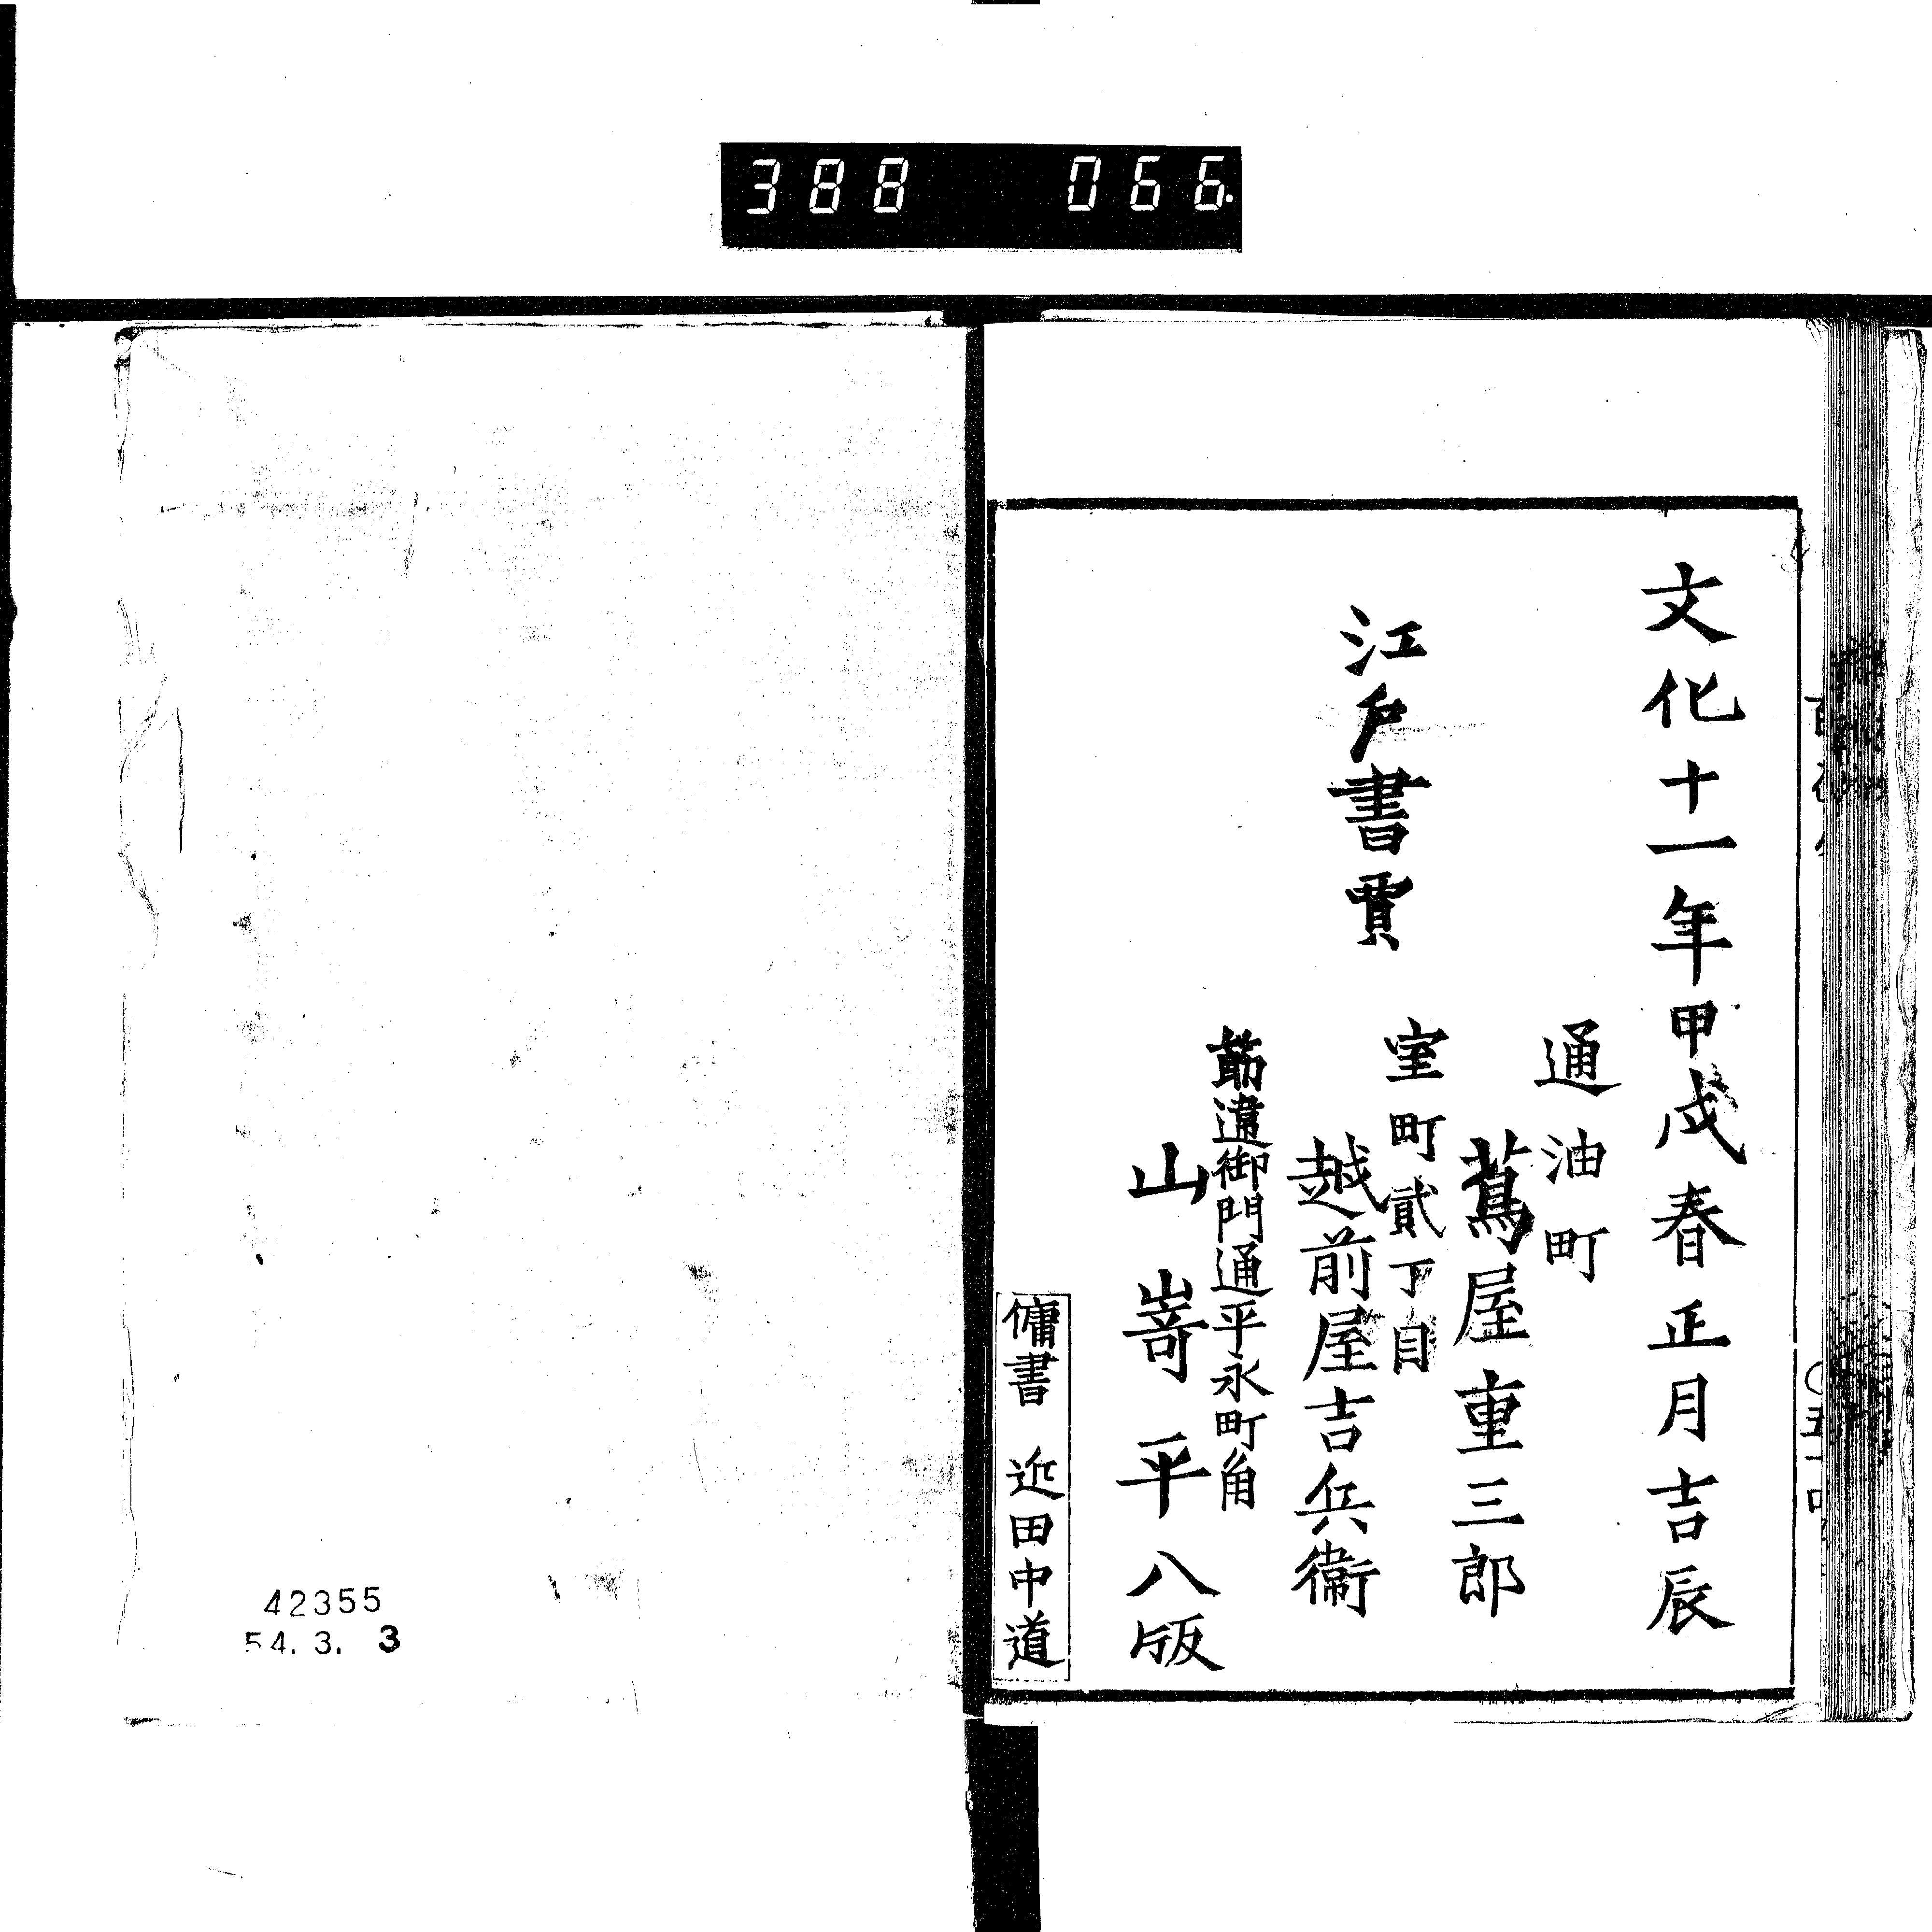 388 066.
文化十一年甲戌春正月吉辰
通油町
蔦屋重三郎
江戸書賈
室町貳丁目
越前屋吉兵衞
筋違御門通平永町角
山嵜平八版
傭書 近田中道
42355
54. 3. 3